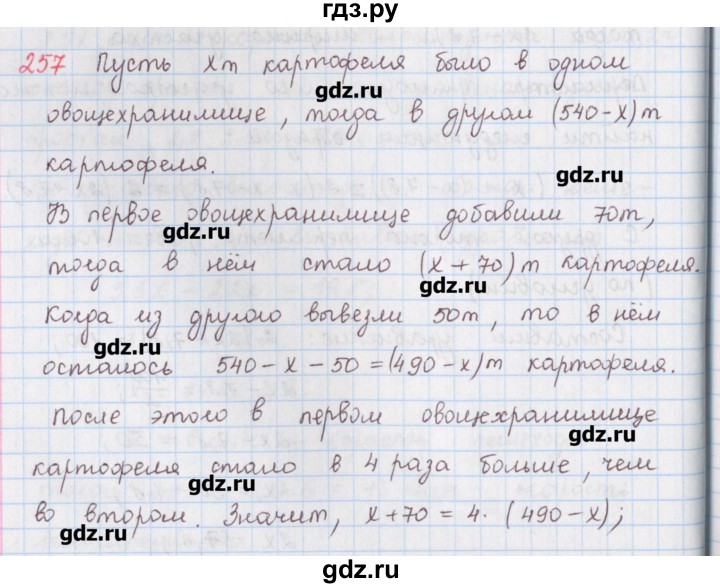 гдз.ру
257 Пусть Xт картофеля было в одном
gdz.ru
овощехранилище, тогда в другом (540-x)т
gdz.ru
картофеля.
gdz.ru
В первое овощехранилище добавили 70т,
gdz.ru
тогда в нём стало (x+70)т картофеля.
gdz.ru
Когда из другого вывезли 50т, то в нём
gdz.ru
осталось 540-x-50=(490-x)т картофеля.
После этого в первом овощехранилище
gdz.ru
картофеля стало в 4 раза больше, чем
gdz.ru
во втором. Значит, x+70=4·(490-x);
gdz.ru
gdz.ru